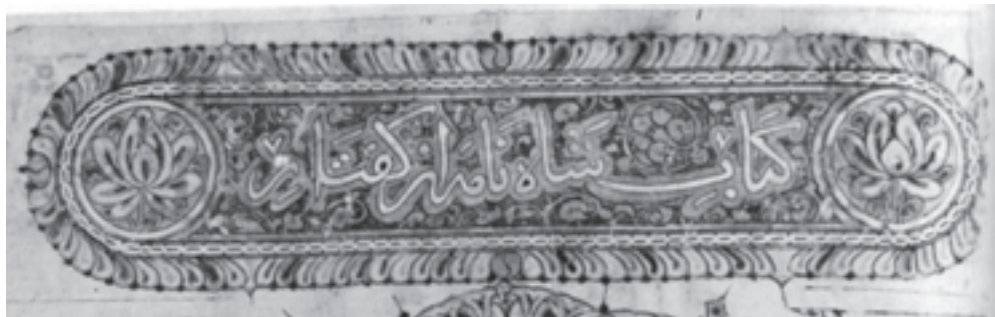 کتاب شاه نامه از گفتار